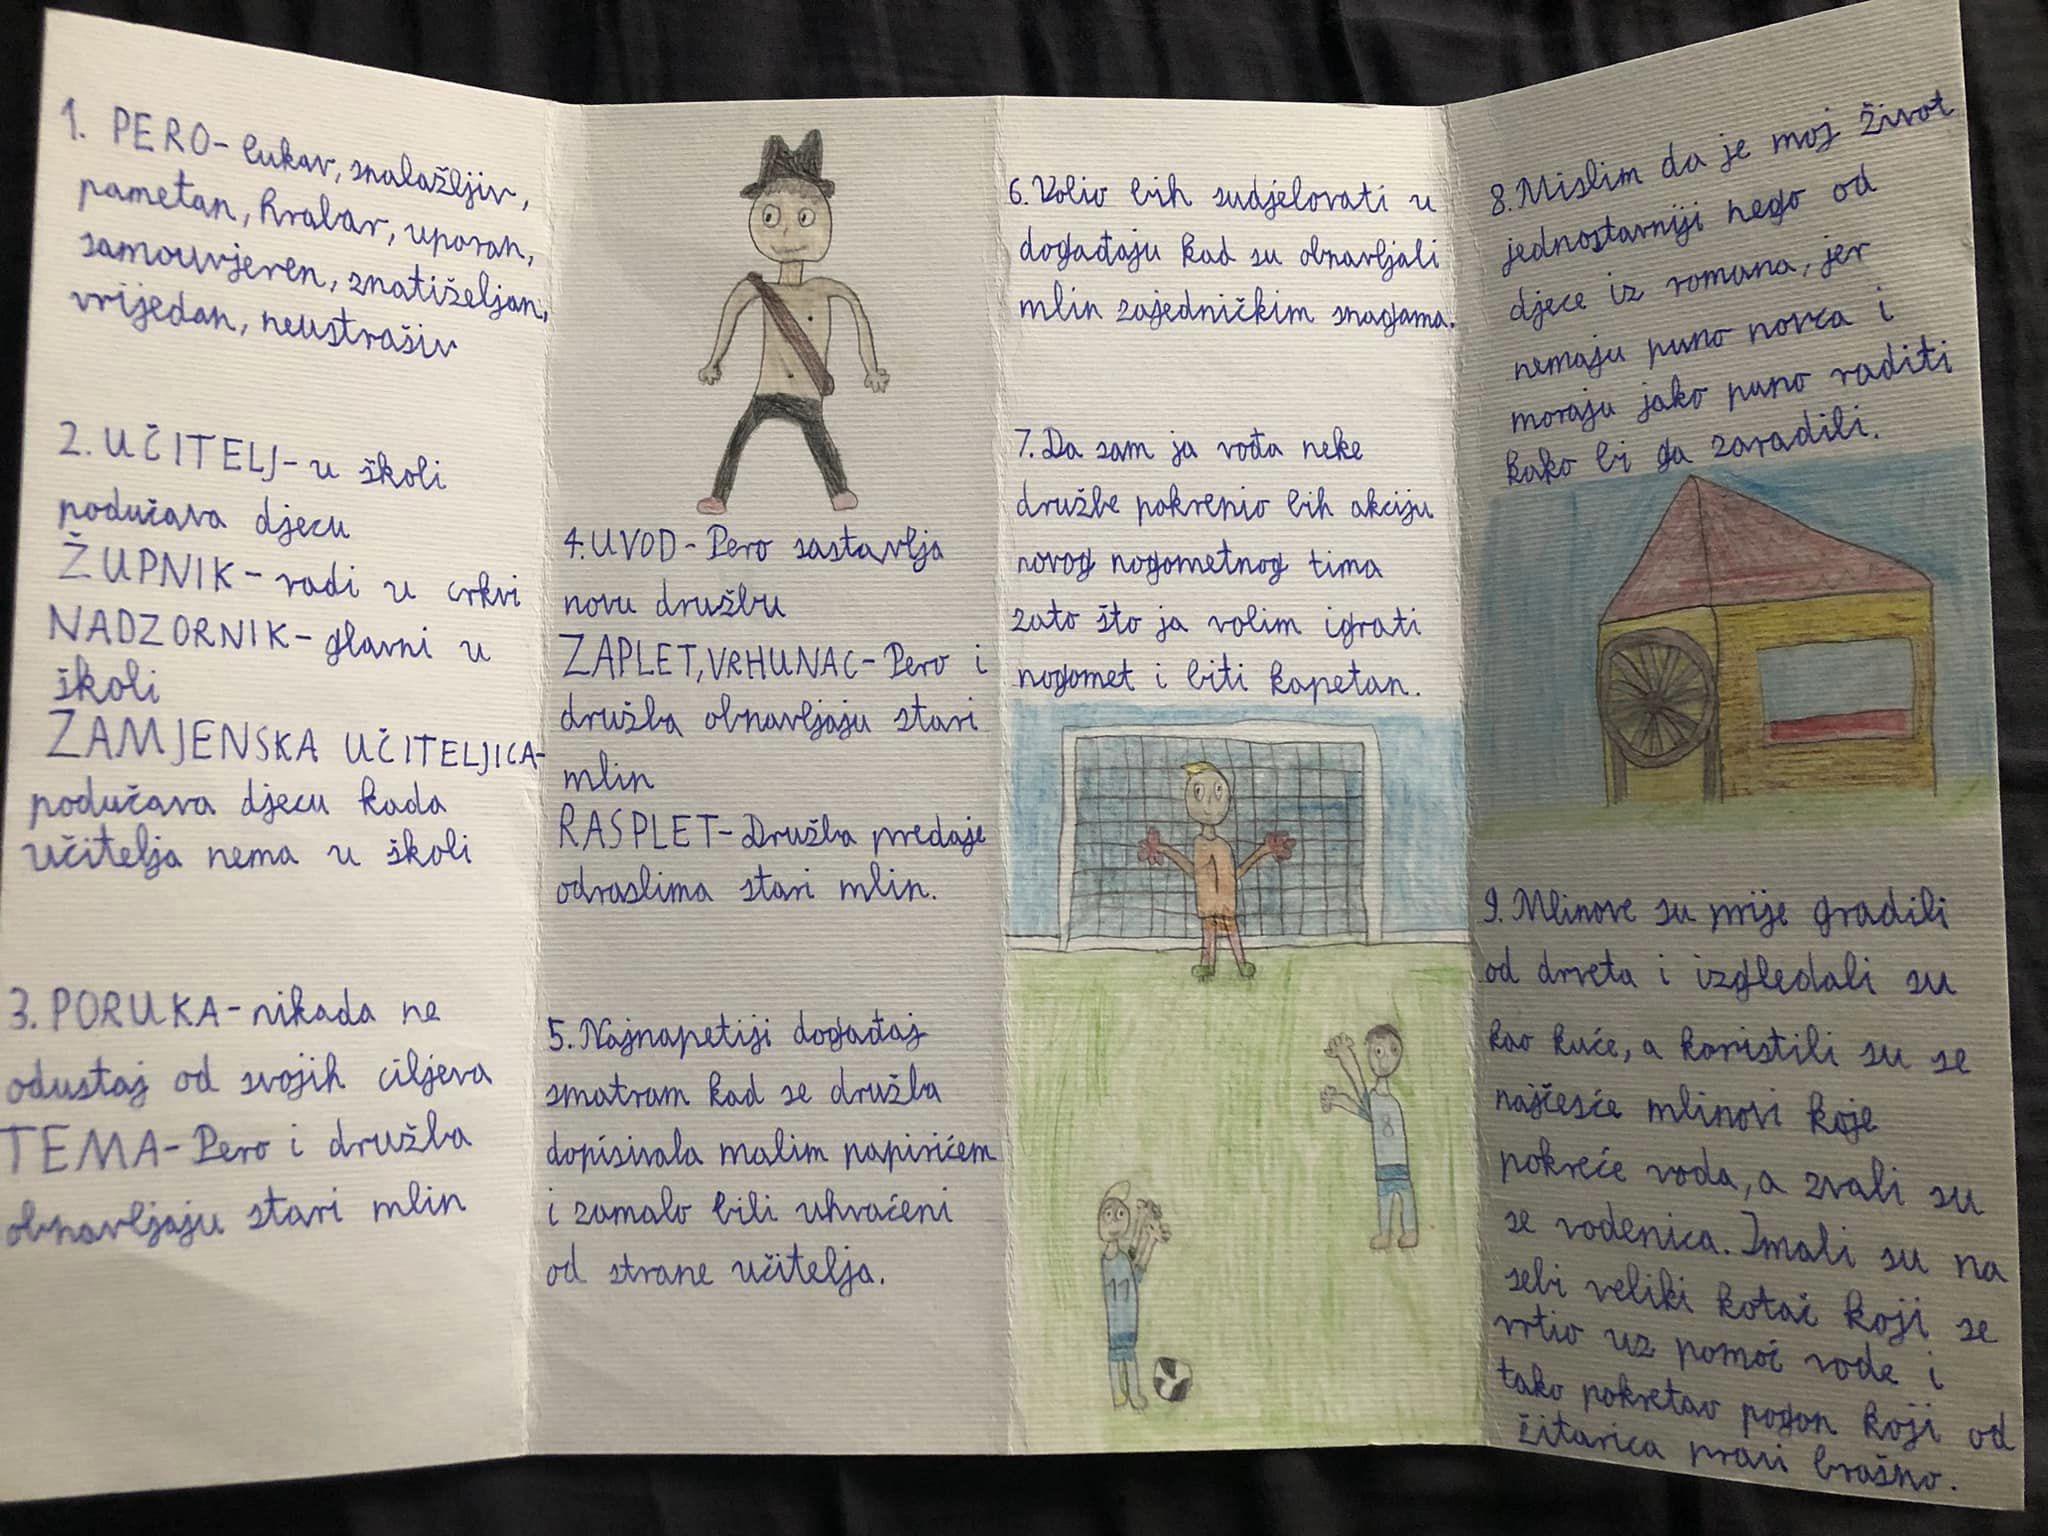 1. PERO- lukav, snalažljiv,
pametan, hrabar, uporan,
samouvjeren, znatiželjan,
vrijedan, neustrašiv
2. UČITELJ- u školi
podučava djecu
ŽUPNIK- radi u crkvi
NADZORNIK- glavni u
školi
ZAMJENSKA UČITELJICA-
podučava djecu kada
učitelja nema u školi
3. PORUKA- nikada ne
odustaj od svojih ciljeva
TEMA- Pero i družba
obnavljaju stari mlin
4. UVOD- Pero sastavlja
novu družbu
ZAPLET, VRHUNAC- Pero i
družba obnavljaju stari
mlin
RASPLET- Družba predaje
odraslima stari mlin.
5. Najnapetiji događaj
smatram kad se družba
dopisivala malim papirićem
i zamalo bili uhvaćeni
od strane učitelja.
6. Volio bih sudjelovati u
događaju kad su obnavljali
mlin zajedničkim snagama.
7. Da sam ja vođa neke
družbe pokrenio bih akciju
novog nogometnog tima
zato što ja volim igrati
nogomet i biti kapetan.
1
8
11
8. Mislim da je moj život
jednostavniji nego od
djece iz romana, jer
nemaju puno novca i
moraju jako puno raditi
kako bi ga zaradili.
9. Mlinove su prije gradili
od drveta i izgledali su
kao kuće, a koristili su se
najčešće mlinovi koje
pokreće voda, a zvali su
se vodenica. Imali su na
sebi veliki kotač koji se
vrtio uz pomoć vode i
tako pokretao pogon koji od
žitarica pravi brašno.